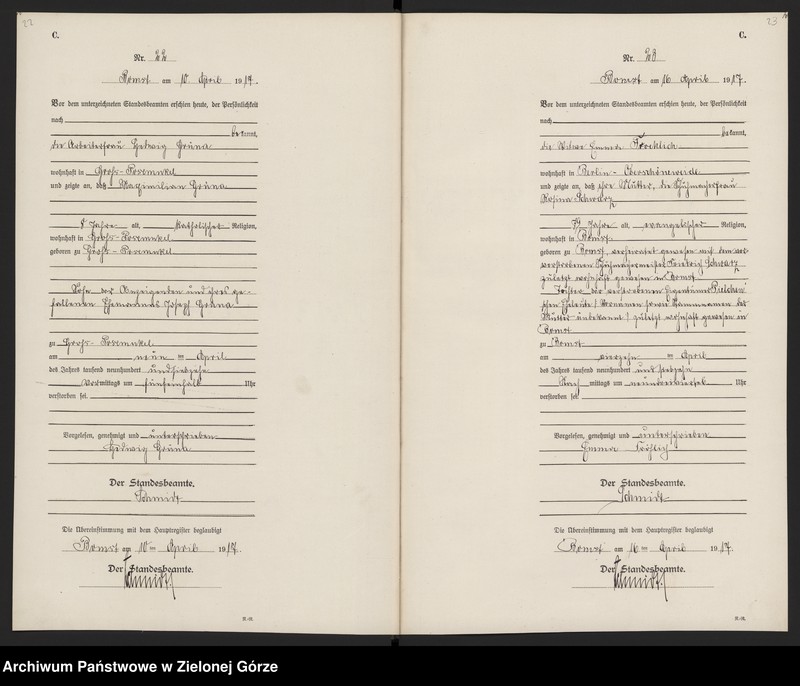 22
C.
Nr. 22
Bomst am 10. April 1917.
Vor dem unterzeichneten Standesbeamten erschien heute, der Persönlichkeit
nach
bekannt,
die Arbeiterfrau Hedwig Gruna
wohnhaft in Groß-Posemukel
und zeigte an, daß Maximilian Gruna
Jahre alt, katholischer Religion,
wohnhaft in Groß-Posemukel
geboren zu Groß-Posemukel
Sohn der Anzeigenden und ihres ge-
fallenen Ehemannes Joseph Gruna
zu Groß-Posemukel
am neun ten April
des Jahres tausend neunhundert undsiebzehn
Vormittags um fünfeinhalb Uhr
verstorben sei.
Vorgelesen, genehmigt und unterschrieben
Hedwig Gruna
Der Standesbeamte.
Schmidt
Die Übereinstimmung mit dem Hauptregister beglaubigt
Bomst am 10ten April 1917.
Der Standesbeamte.
Schmidt
23
C.
Nr. 23
Bomst am 16 April 1917.
Vor dem unterzeichneten Standesbeamten erschien heute, der Persönlichkeit
nach
bekannt,
die Witwe Emma
wohnhaft in Berlin-Oberschöneweide
und zeigte an, daß ihre Mutter, die Schuhmacherfrau
Rosina Schwarz
Jahre alt, evangelischer Religion,
wohnhaft in Bomst
geboren zu Bomst, verheiratet gewesen mit dem
verstorbenen Schuhmachermeister Schwarz
zuletzt wohnhaft gewesen in Bomst
Tochter der verstorbenen Eigentümer
schen Eheleute! Vornamen sowie Stammnamen der
Mutter unbekannt! zuletzt wohnhaft gewesen in
Bomst
zu Bomst
am vierzehn ten April
des Jahres tausend neunhundert und siebzehn
Nach mittags um neundreiviertel Uhr
verstorben sei.
Vorgelesen, genehmigt und unterschrieben
Emma Fröhlich
Der Standesbeamte.
Schmidt
Die Übereinstimmung mit dem Hauptregister beglaubigt
Bomst am 16ten April 1917.
Der Standesbeamte.
Schmidt
Archiwum Państwowe w Zielonej Górze